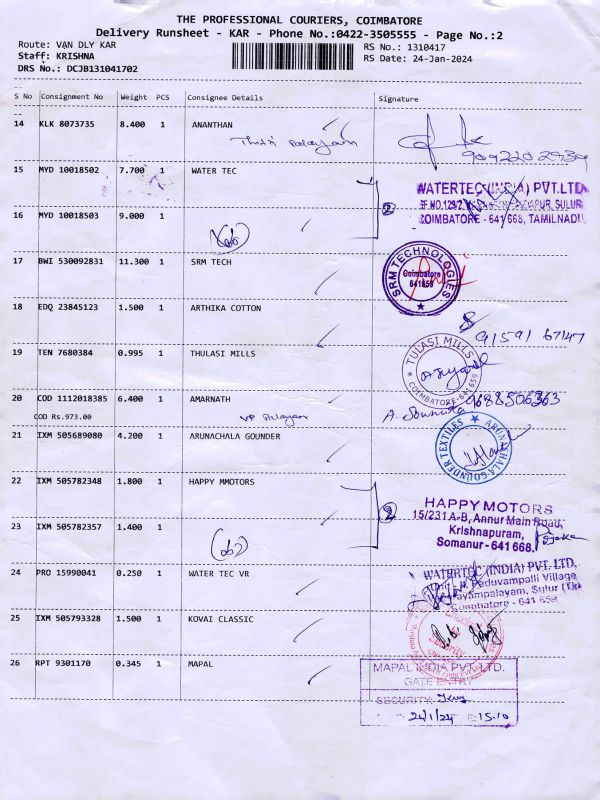 THE PROFESSIONAL COURIERS, COIMBATORE
Delivery Runsheet - KAR - Phone No.:0422-3505555 - Page No.:2
Route: VAN DLY KAR
RS No.: 1310417
Staff: KRISHNA
RS Date: 24-Jan-2024
DRS No.: DCJB131041702
S No Consignment No Weight PCS Consignee Details Signature
14 KLK 8073735 8.400 1 ANANTHAN
15 MYD 10018502 7.700 1 WATER TEC
WATERTEC (INDIA) PVT.LTD
SULUR
COIMBATORE - 641 668, TAMILNADU
2
16 MYD 10018503 9.000 1
17 BWI 530092831 11.300 1 SRM TECH
SRM TECHNOLOGIES
Coimbatore
641659
18 EDQ 23845123 1.500 1 ARTHIKA COTTON
91591 67147
19 TEN 7680384 0.995 1 THULASI MILLS
TULASI MILLS
COIMBATORE-641 659
20 COD 1112018385 6.400 1 AMARNATH
9688506363
COD Rs.973.00
21 IXM 505689080 4.200 1 ARUNACHALA GOUNDER
ARUNACHALA GOUNDER TEXTILES
22 IXM 505782348 1.800 1 HAPPY MMOTORS
2
HAPPY MOTORS
15/231 A-B, Annur Main Road,
Krishnapuram,
Somanur - 641 668.
23 IXM 505782357 1.400 1
24 PRO 15990041 0.250 1 WATER TEC VR
WATERTEC (INDIA) PVT. LTD.
Paduvampalli Village
Sulur (Tk)
Coimbatore - 641 659.
25 IXM 505793328 1.500 1 KOVAI CLASSIC
26 RPT 9301170 0.345 1 MAPAL
MAPAL INDIA PVT. LTD.
GATE ENTRY
SECURITY
24/1/24 15.10